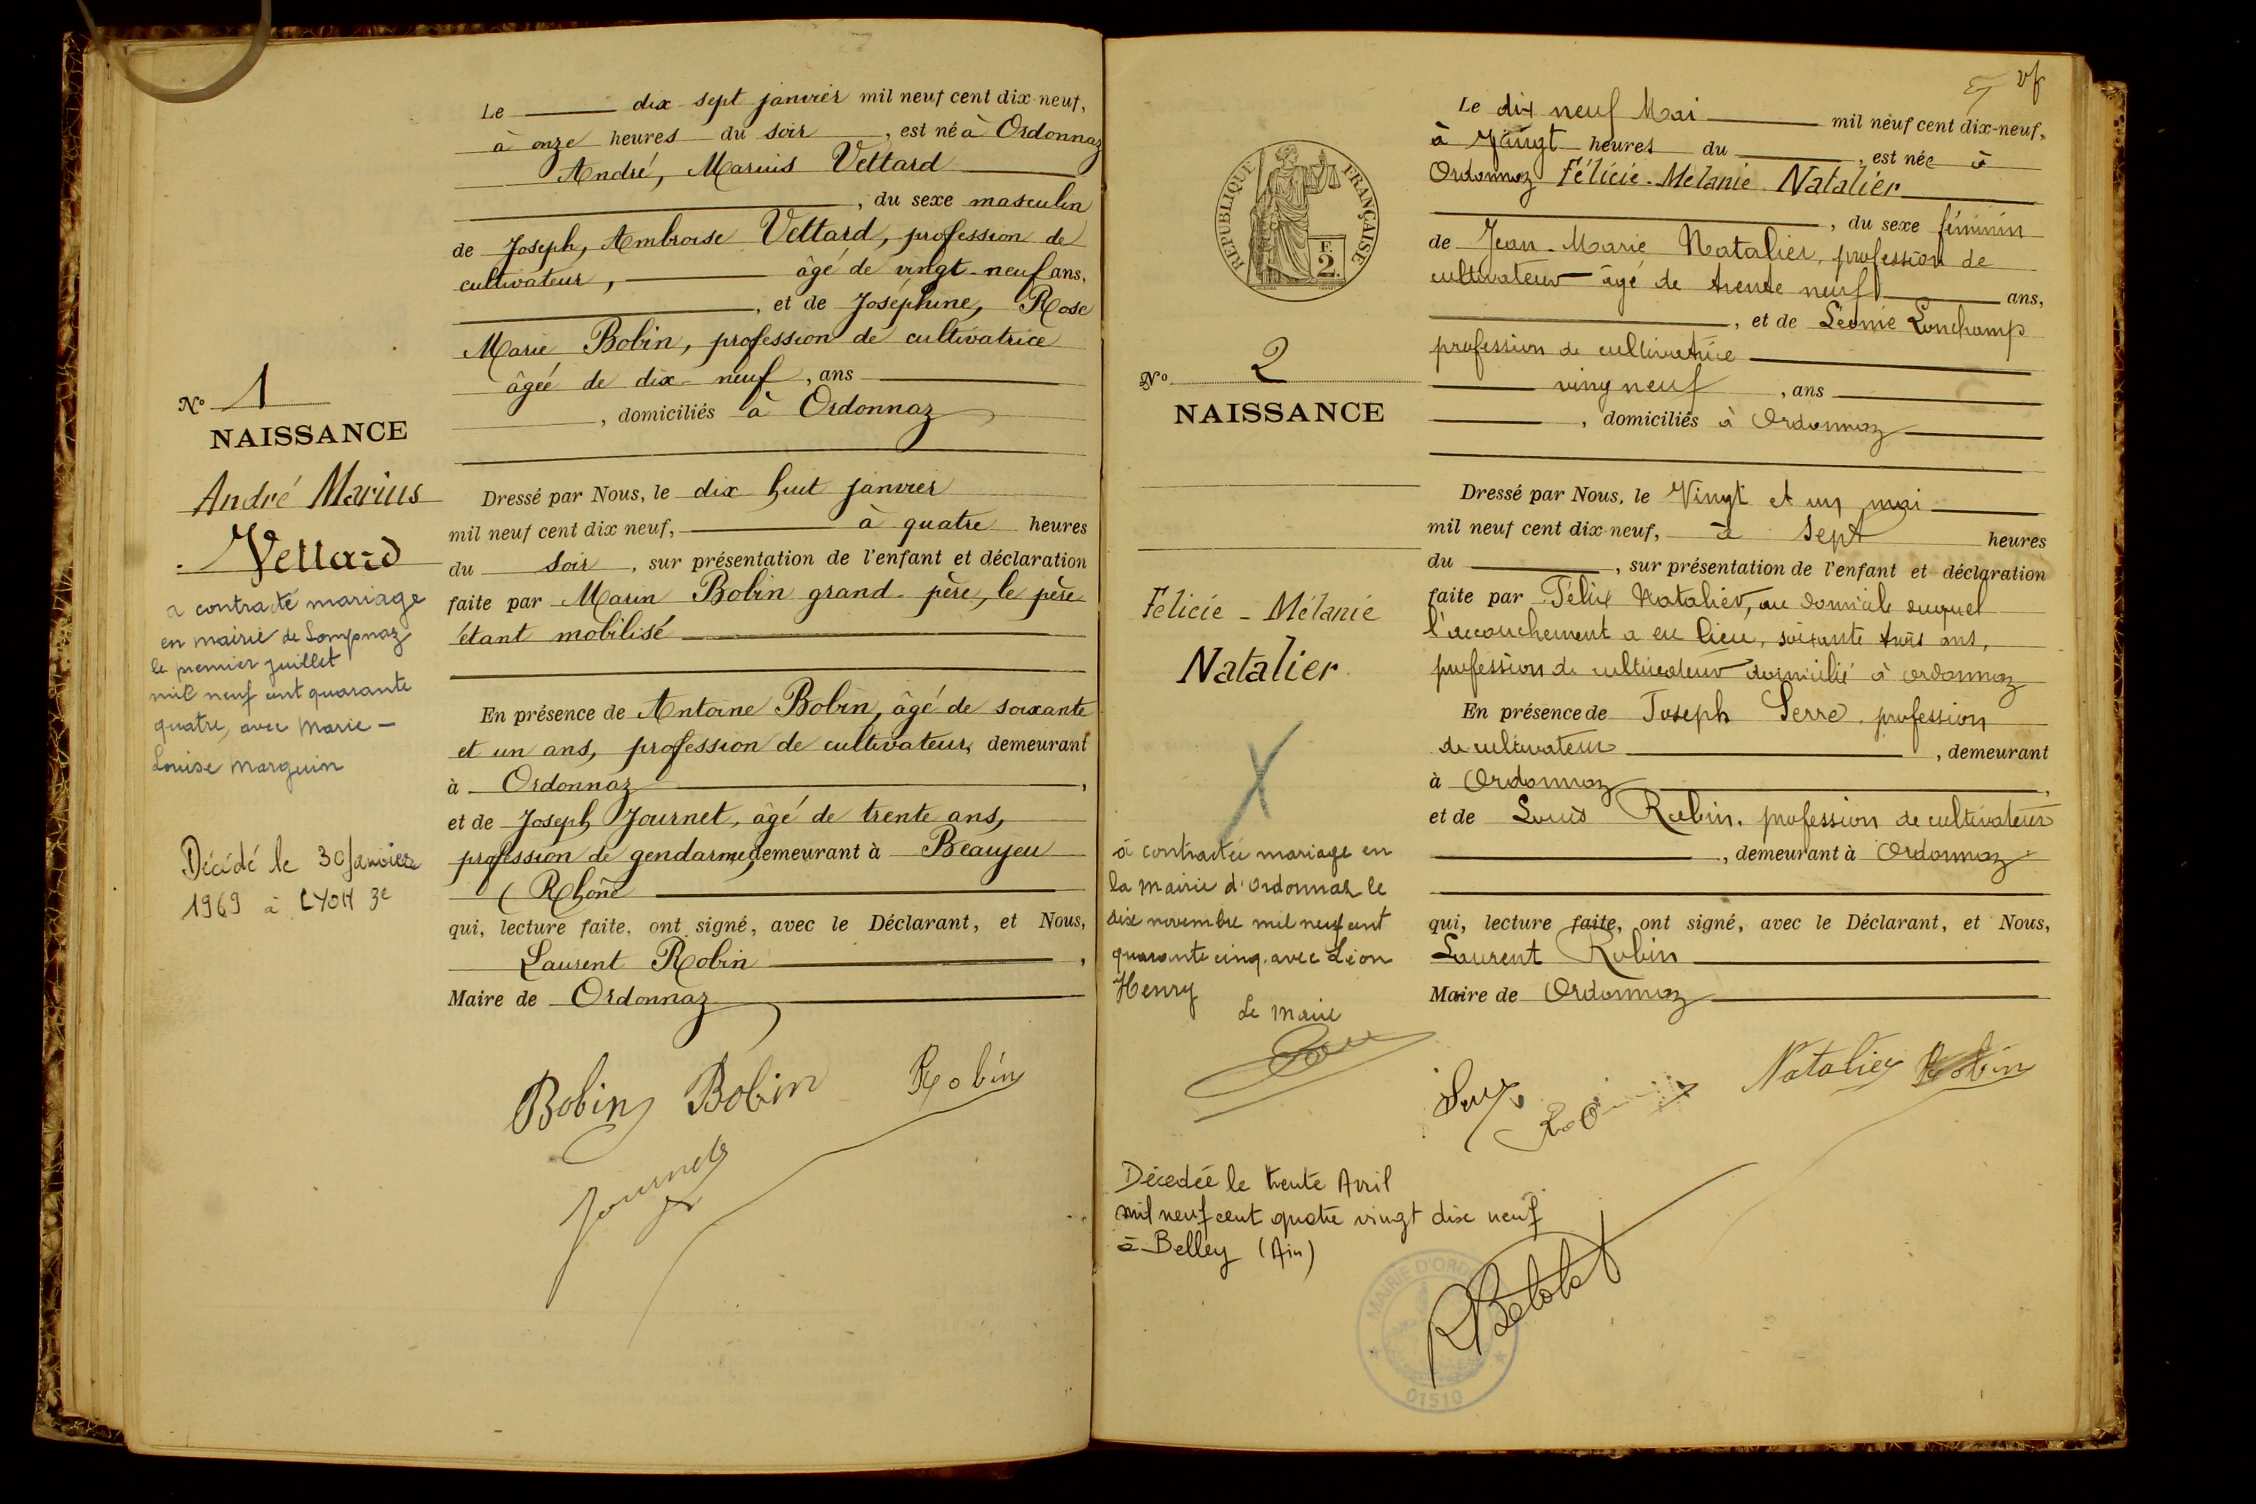 Le dix sept janvier mil neuf cent dix-neuf,
à onze heures du soir, est né à Ordonnaz
André, Marius Vettard
, du sexe masculin
de Joseph, Ambroise Vettard, profession de
cultivateur, âgé de vingt-neuf ans,
, et de Joséphine, Rose
Marie Bobin, profession de cultivatrice
âgée de dix-neuf, ans
, domiciliés à Ordonnaz
No 1
NAISSANCE
André Marius
Vettard
a contracté mariage
en mairie de Lompnaz
le premier juillet
mil neuf cent quarante
quatre, avec Marie-
Louise Marguin
Décédé le 30 Janvier
1969 à LYON 3e
Dressé par Nous, le dix huit janvier
mil neuf cent dix neuf, à quatre heures
du soir, sur présentation de l'enfant et déclaration
faite par Marin Bobin grand-père, le père
étant mobilisé
En présence de Antoine Bobin, âgé de soixante
et un ans, profession de cultivateur, demeurant
à Ordonnaz,
et de Joseph Journet, âgé de trente ans,
profession de gendarme, demeurant à Beaujeu
(Rhône
qui, lecture faite, ont signé, avec le Déclarant, et Nous,
Laurent Robin,
Maire de Ordonnaz
Bobin Bobin Robin
Journet
Le dix neuf Mai mil neuf cent dix-neuf,
à Vingt heures du, est née à
Ordonnaz Félicie-Mélanie Natalier
, du sexe féminin
de Jean-Marie Natalier, profession de
cultivateur âgé de trente neuf ans,
, et de Léonie Lonchamp
profession de cultivatrice
ving neuf, ans
, domiciliés à Ordonnaz
RÉPUBLIQUE FRANÇAISE
F.
2.
No 2
NAISSANCE
Félicie-Mélanie
Natalier
à contractée mariage en
la mairie d'Ordonnaz le
dix novembre mil neuf cent
quarante cinq. avec Léon
Henry
Le Maire
Décedée le trente Avril
mil neuf cent quatre vingt dix neuf
à Belley (Ain)
Dressé par Nous, le Vingt et un mai
mil neuf cent dix-neuf, à sept heures
du, sur présentation de l'enfant et déclaration
faite par Félix Natalier, au domicile duquel
l'accouchement a eu lieu, soixante trois ans,
profession de cultivateur domicilié à Ordonnaz
En présence de Joseph Serre. profession
de cultivateur, demeurant
à Ordonnaz,
et de Louis Robin. profession de cultivateur
, demeurant à Ordonnaz
qui, lecture faite, ont signé, avec le Déclarant, et Nous,
Laurent Robin
Maire de Ordonnaz
Natalier Robin
MAIRIE D'ORD
01510